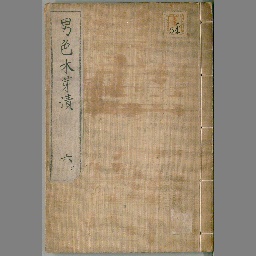 男色木芽漬 六